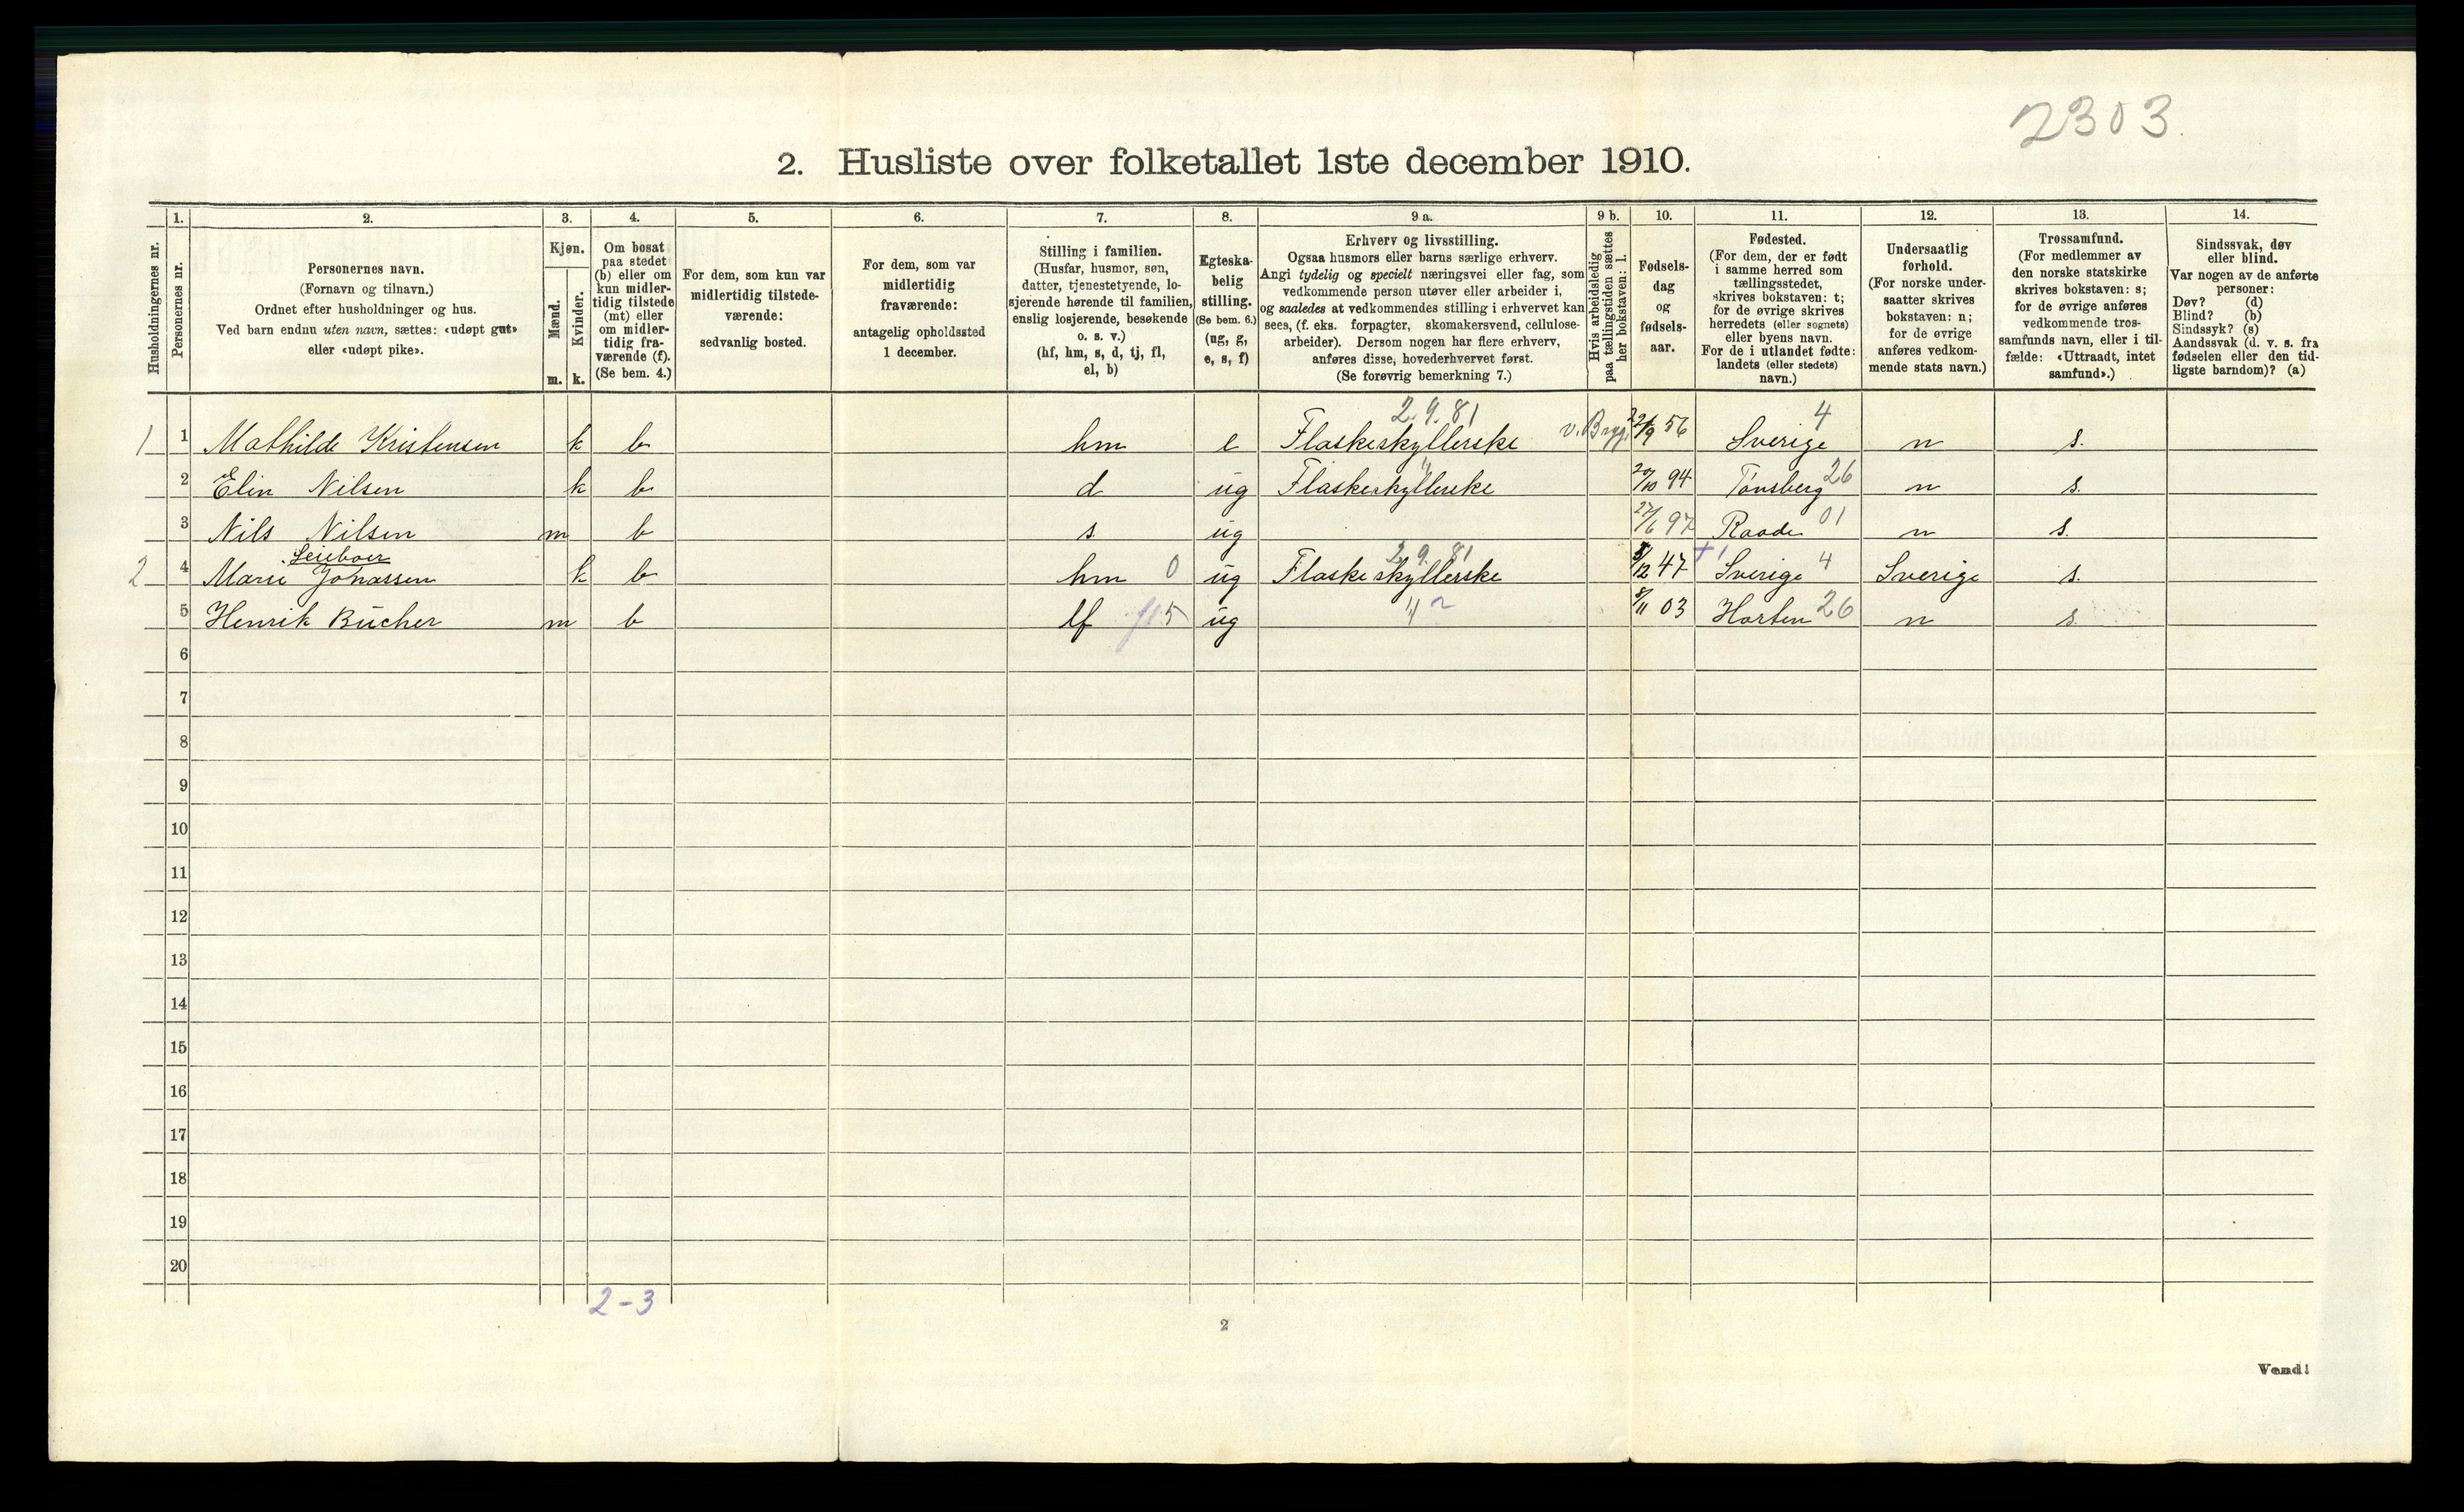 2303.
2. Husliste over folketallet 1ste december 1910.
Husholdningernes nr.
1. Personernes nr.
2. Personernes navn.
(Fornavn og tilnavn.)
Ordnet efter husholdninger og hus.
Ved barn endnu uten navn, sættes: «udøpt gut»
eller «udøpt pike».
3. Kjøn.
Mænd. m.
Kvinder. k.
4. Om bosat
paa stedet
(b) eller om
kun midler-
tidig tilstede
(mt) eller
om midler-
tidig fra-
værende (f).
(Se bem. 4.)
5. For dem, som kun var
midlertidig tilstede-
værende:
sedvanlig bosted.
6. For dem, som var
midlertidig
fraværende:
antagelig opholdssted
1 december.
7. Stilling i familien.
(Husfar, husmor, søn,
datter, tjenestetyende, lo-
sjerende hørende til familien,
enslig losjerende, besøkende
o. s. v.)
(hf, hm, s, d, tj, fl,
el, b)
8. Egteska-
belig
stilling.
(Se bem. 6.)
(ug, g,
e, s, f)
9 a. Erhverv og livsstilling.
Ogsaa husmors eller barns særlige erhverv.
Angi tydelig og specielt næringsvei eller fag, som
vedkommende person utøver eller arbeider i,
og saaledes at vedkommendes stilling i erhvervet kan
sees, (f. eks. forpagter, skomakersvend, cellulose-
arbeider). Dersom nogen har flere erhverv,
anføres disse, hovederhvervet først.
(Se forøvrig bemerkning 7.)
9 b. Hvis arbeidsledig
paa tællingstiden sættes
her bokstaven: l.
10. Fødsels-
dag
og
fødsels-
aar.
11. Fødested.
(For dem, der er født
i samme herred som
tællingsstedet,
skrives bokstaven: t;
for de øvrige skrives
herredets (eller sognets)
eller byens navn.
For de i utlandet fødte:
landets (eller stedets)
navn.)
12. Undersaatlig
forhold.
(For norske under-
saatter skrives
bokstaven: n;
for de øvrige
anføres vedkom-
mende stats navn.)
13. Trossamfund.
(For medlemmer av
den norske statskirke
skrives bokstaven: s;
for de øvrige anføres
vedkommende tros-
samfunds navn, eller i til-
fælde: «Uttraadt, intet
samfund».)
14. Sindssvak, døv
eller blind.
Var nogen av de anførte
personer:
Døv? (d)
Blind? (b)
Sindssyk? (s)
Aandssvak (d. v. s. fra
fødselen eller den tid-
ligste barndom)? (a)
2.9.81 4
1 1 Mathilde Kristensen k b hm e Flaskeskyllerske v. Bryg. 22/9 56 Sverige n s.
2 Elin Nilsen k b d ug Flaskeskyllerske " 20/10 94 Tønsberg 26 n s.
3 Nils Nilsen m b s ug 27/6 97 Raade 01 n s.
Leieboer 2.9.81
2 4 Marie Jonassen k b hm 0 ug Flaskeskyllerske /12 47 + 1 Sverige 4 Sverige s.
5 Henrik Bücher m b lf 5 ug 4 8/11 03 Horten 26 n s.
6
7
8
9
10
11
12
13
14
15
16
17
18
19
20
2-3
2
Vend!